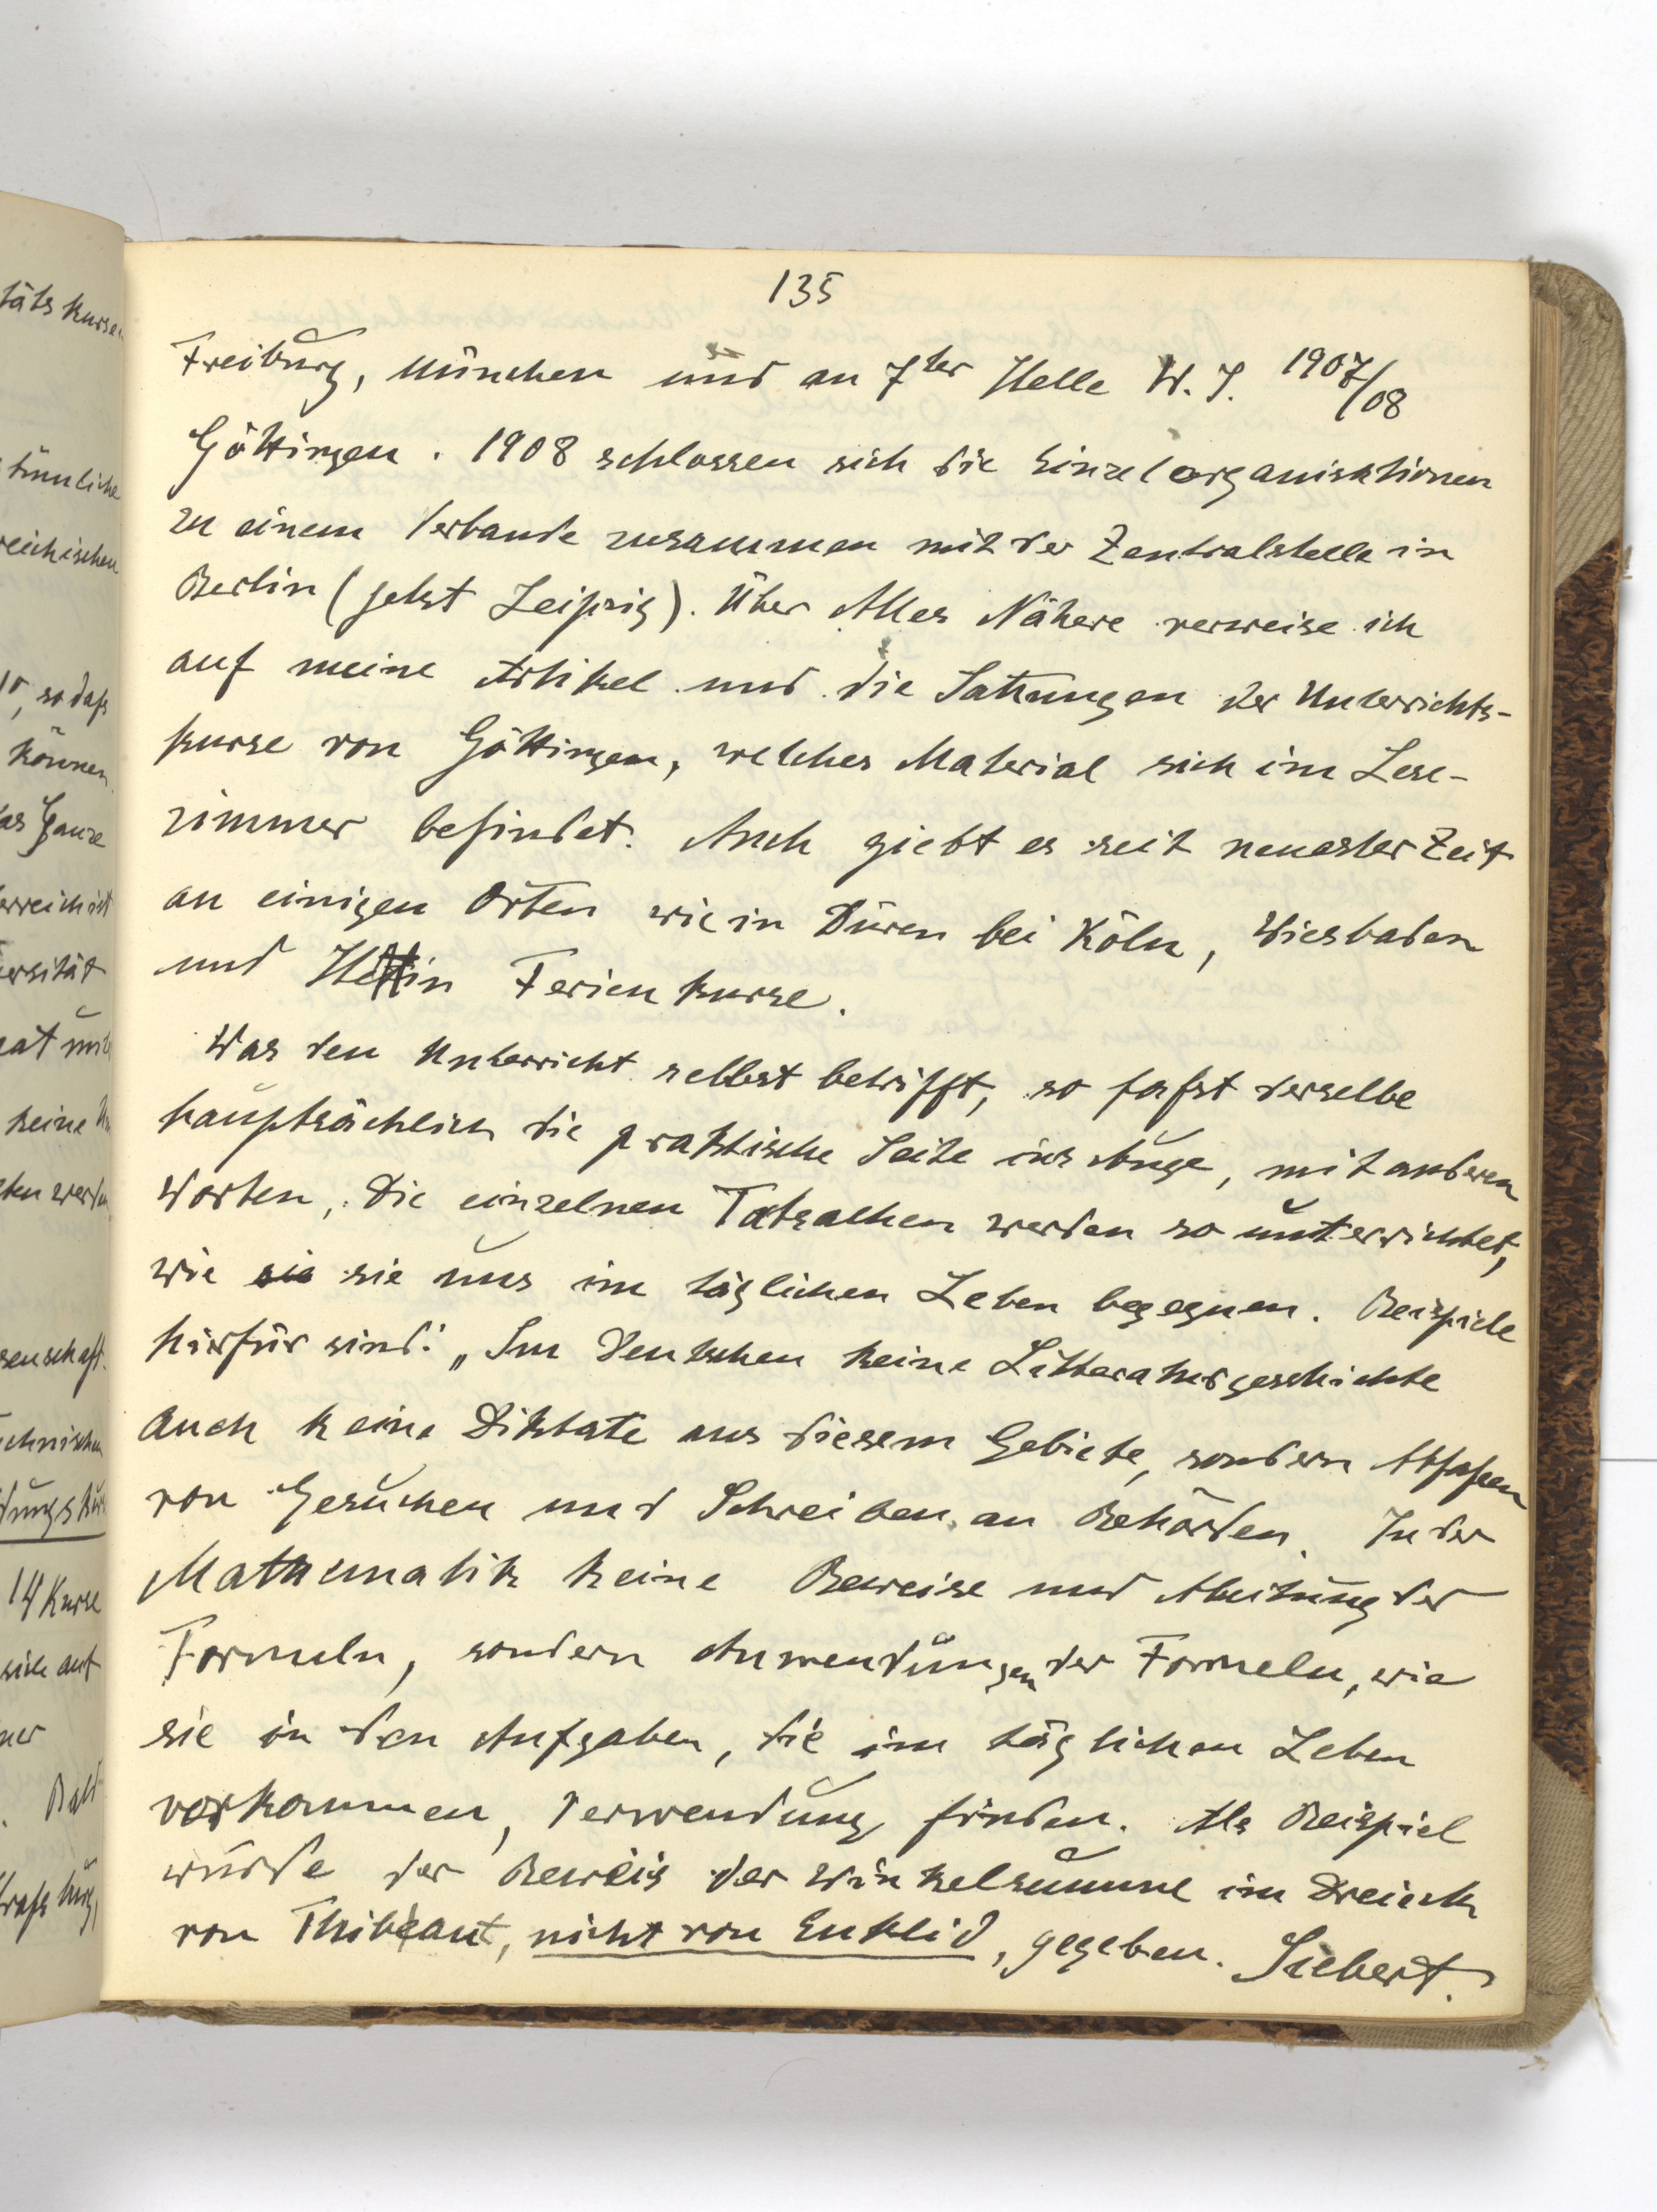 135
Freiburg, München und an 7ter Stelle W. S. 1907/08
Göttingen. 1908 schlossen sich die Einzelorganisationen
zu einem Verbande zusammen mit der Zentralstelle in
Berlin (jetzt Leipzig). Über Alles Nähere verweise ich
auf meine Artikel und die Satzungen der Unterrichts-
kurse von Göttingen, welches Material sich im Lese-
zimmer befindet. Auch giebt es seit neuester Zeit
an einigen Orten wie in Düren bei Köln, Wiesbaden
und Stettin Ferienkurse.
Was den Unterricht selbst betrifft, so faßt derselbe
hauptsächlich die praktische Seite ins Auge, mit anderen
Worten, die einzelnen Tatsachen werden so unterrichtet,
wie sie sie uns im täglichen Leben begegnen. Beispiele
hierfür sind: „Im Deutschen keine Litteraturgeschichte
auch keine Diktate aus diesem Gebiete, sondern Abfaßen
von Gesuchen und Schreiben an Behörden. In der
Mathematik keine Beweise und Ableitung der
Formeln, sondern Anwendungen der Formeln, wie
sie in den Aufgaben, die im täglichen Leben
vorkommen, Verwendung finden. Als Beispiel
würde der Beweis der Winkelsumme im Dreieck
von Thibaut, nicht von Euklid, gegeben. Siebert.
täts kurse
tümliche
reichischen
so daß
können
das Ganze
erreich ist
ersität
keine
ten werden
senschaft
technischen
14 Kurse
sich auf
ner